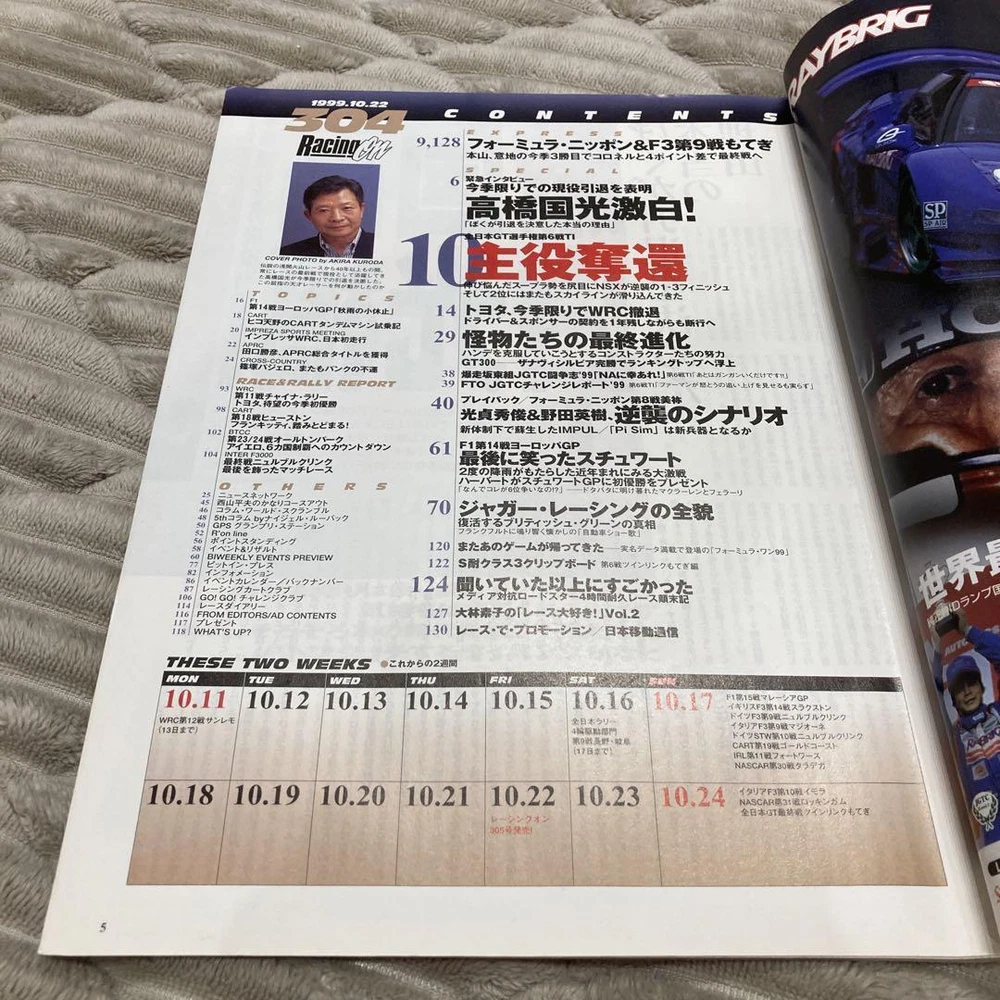 1999.10.22
304
CONTENTS
Racing On
COVER PHOTO by AKIRA KURODA
伝説の浅間火山レースから40年以上もの間、
常にレースの最前線で現役として活躍してき
た高橋国光が今季限りでの引退を決意した。
この屈指の天才レーサーを何が動かしたのか
TOPICS
16 F1
第14戦ヨーロッパGP「秋雨の小休止」
18 CART
ヒコ天野のCARTタンデムマシン試乗記
20 IMPREZA SPORTS MEETING
インプレッサWRC、日本初走行
22 APRC
田口勝彦、APRC総合タイトルを獲得
24 CROSS-COUNTRY
篠塚パジェロ、またもパンクの不運
RACE&RALLY REPORT
93 WRC
第11戦チャイナ・ラリー
トヨタ、待望の今季初優勝
98 CART
第18戦ヒューストン
フランキッティ、踏みとどまる!
102 BTCC
第23/24戦オールトンパーク
アイエロ、6カ国制覇へのカウントダウン
104 INTER F3000
最終戦ニュルブルクリンク
最後を飾ったマッチレース
OTHERS
25 ニュースネットワーク
45 西山平夫のかなりコースアウト
46 コラム・ワールド・スクランブル
48 5thコラム byナイジェル・ルーバック
50 GPS グランプリ・ステーション
52 R'on line
56 ポイントスタンディング
58 イベント&リザルト
60 BIWEEKLY EVENTS PREVIEW
77 ピットイン・プレス
82 インフォメーション
86 イベントカレンダー/バックナンバー
87 レーシングカートクラブ
106 GO! GO! チャレンジクラブ
114 レースダイアリー
116 FROM EDITORS/AD CONTENTS
117 プレゼント
118 WHAT'S UP?
EXPRESS
9,128 フォーミュラ・ニッポン&F3第9戦もてぎ
本山、意地の今季3勝目でコロネルと4ポイント差で最終戦へ
SPECIAL
緊急インタビュー
6 今季限りでの現役引退を表明
高橋国光激白!
「ぼくが引退を決意した本当の理由」
全日本GT選手権第6戦TI
10 主役奪還
伸び悩んだスープラ勢を尻目にNSXが逆襲の1-3フィニッシュ
そして2位にはまたもスカイラインが滑り込んできた
14 トヨタ、今季限りでWRC撤退
ドライバー&スポンサーの契約を1年残しながらも断行へ
29 怪物たちの最終進化
ハンデを克服していこうとするコンストラクターたちの努力
GT300——ザナヴィシルビア完勝でランキングトップへ浮上
38 爆走坂東組JGTC闘争志'99「NAに幸あれ!」 第6戦TI「あとはガンガンいくだけです!」
39 FTO JGTCチャレンジレポート'99 第6戦TI「ファーマンが怒とうの追い上げを見せるも実らず」
プレイバック/フォーミュラ・ニッポン第8戦美祢
40 光貞秀俊&野田英樹、逆襲のシナリオ
新体制下で蘇生したIMPUL/「Pi Sim」は新兵器となるか
F1第14戦ヨーロッパGP
61 最後に笑ったスチュワート
2度の降雨がもたらした近年まれにみる大激戦
ハーバートがスチュワートGPに初優勝をプレゼント
「なんでコレが6位争いなの!?」——ドタバタに明け暮れたマクラーレンとフェラーリ
70 ジャガー・レーシングの全貌
復活するブリティッシュ・グリーンの真相
フランクフルトに鳴り響く懐かしの「自動車ショー歌」
120 またあのゲームが帰ってきた——実名データ満載で登場の「フォーミュラ・ワン99」
122 S耐クラス3クリップボード 第6戦ツインリンクもてぎ編
124 聞いていた以上にすごかった
メディア対抗ロードスター4時間耐久レース顛末記
127 大林素子の「レース大好き!」Vol.2
130 レース・で・プロモーション/日本移動通信
THESE TWO WEEKS ●これからの2週間
MON TUE WED THU FRI SAT SUN
10.11 10.12 10.13 10.14 10.15 10.16 10.17
WRC第12戦サンレモ
(13日まで)
全日本ラリー
4輪駆動部門
第9戦長野・岐阜
(17日まで)
F1第15戦マレーシアGP
イギリスF3第14戦スラクストン
ドイツF3第9戦ニュルブルクリンク
イタリアF3第9戦マジオーネ
ドイツSTW第10戦ニュルブルクリンク
CART第19戦ゴールドコースト
IRL第11戦フォートワース
NASCAR第30戦タラデガ
10.18 10.19 10.20 10.21 10.22 10.23 10.24
レーシングオン
305号発売!
イタリアF3第10戦イモラ
NASCAR第31戦ロッキンガム
全日本GT最終戦ツインリンクもてぎ
5
RAYBRIG
SP
世界最